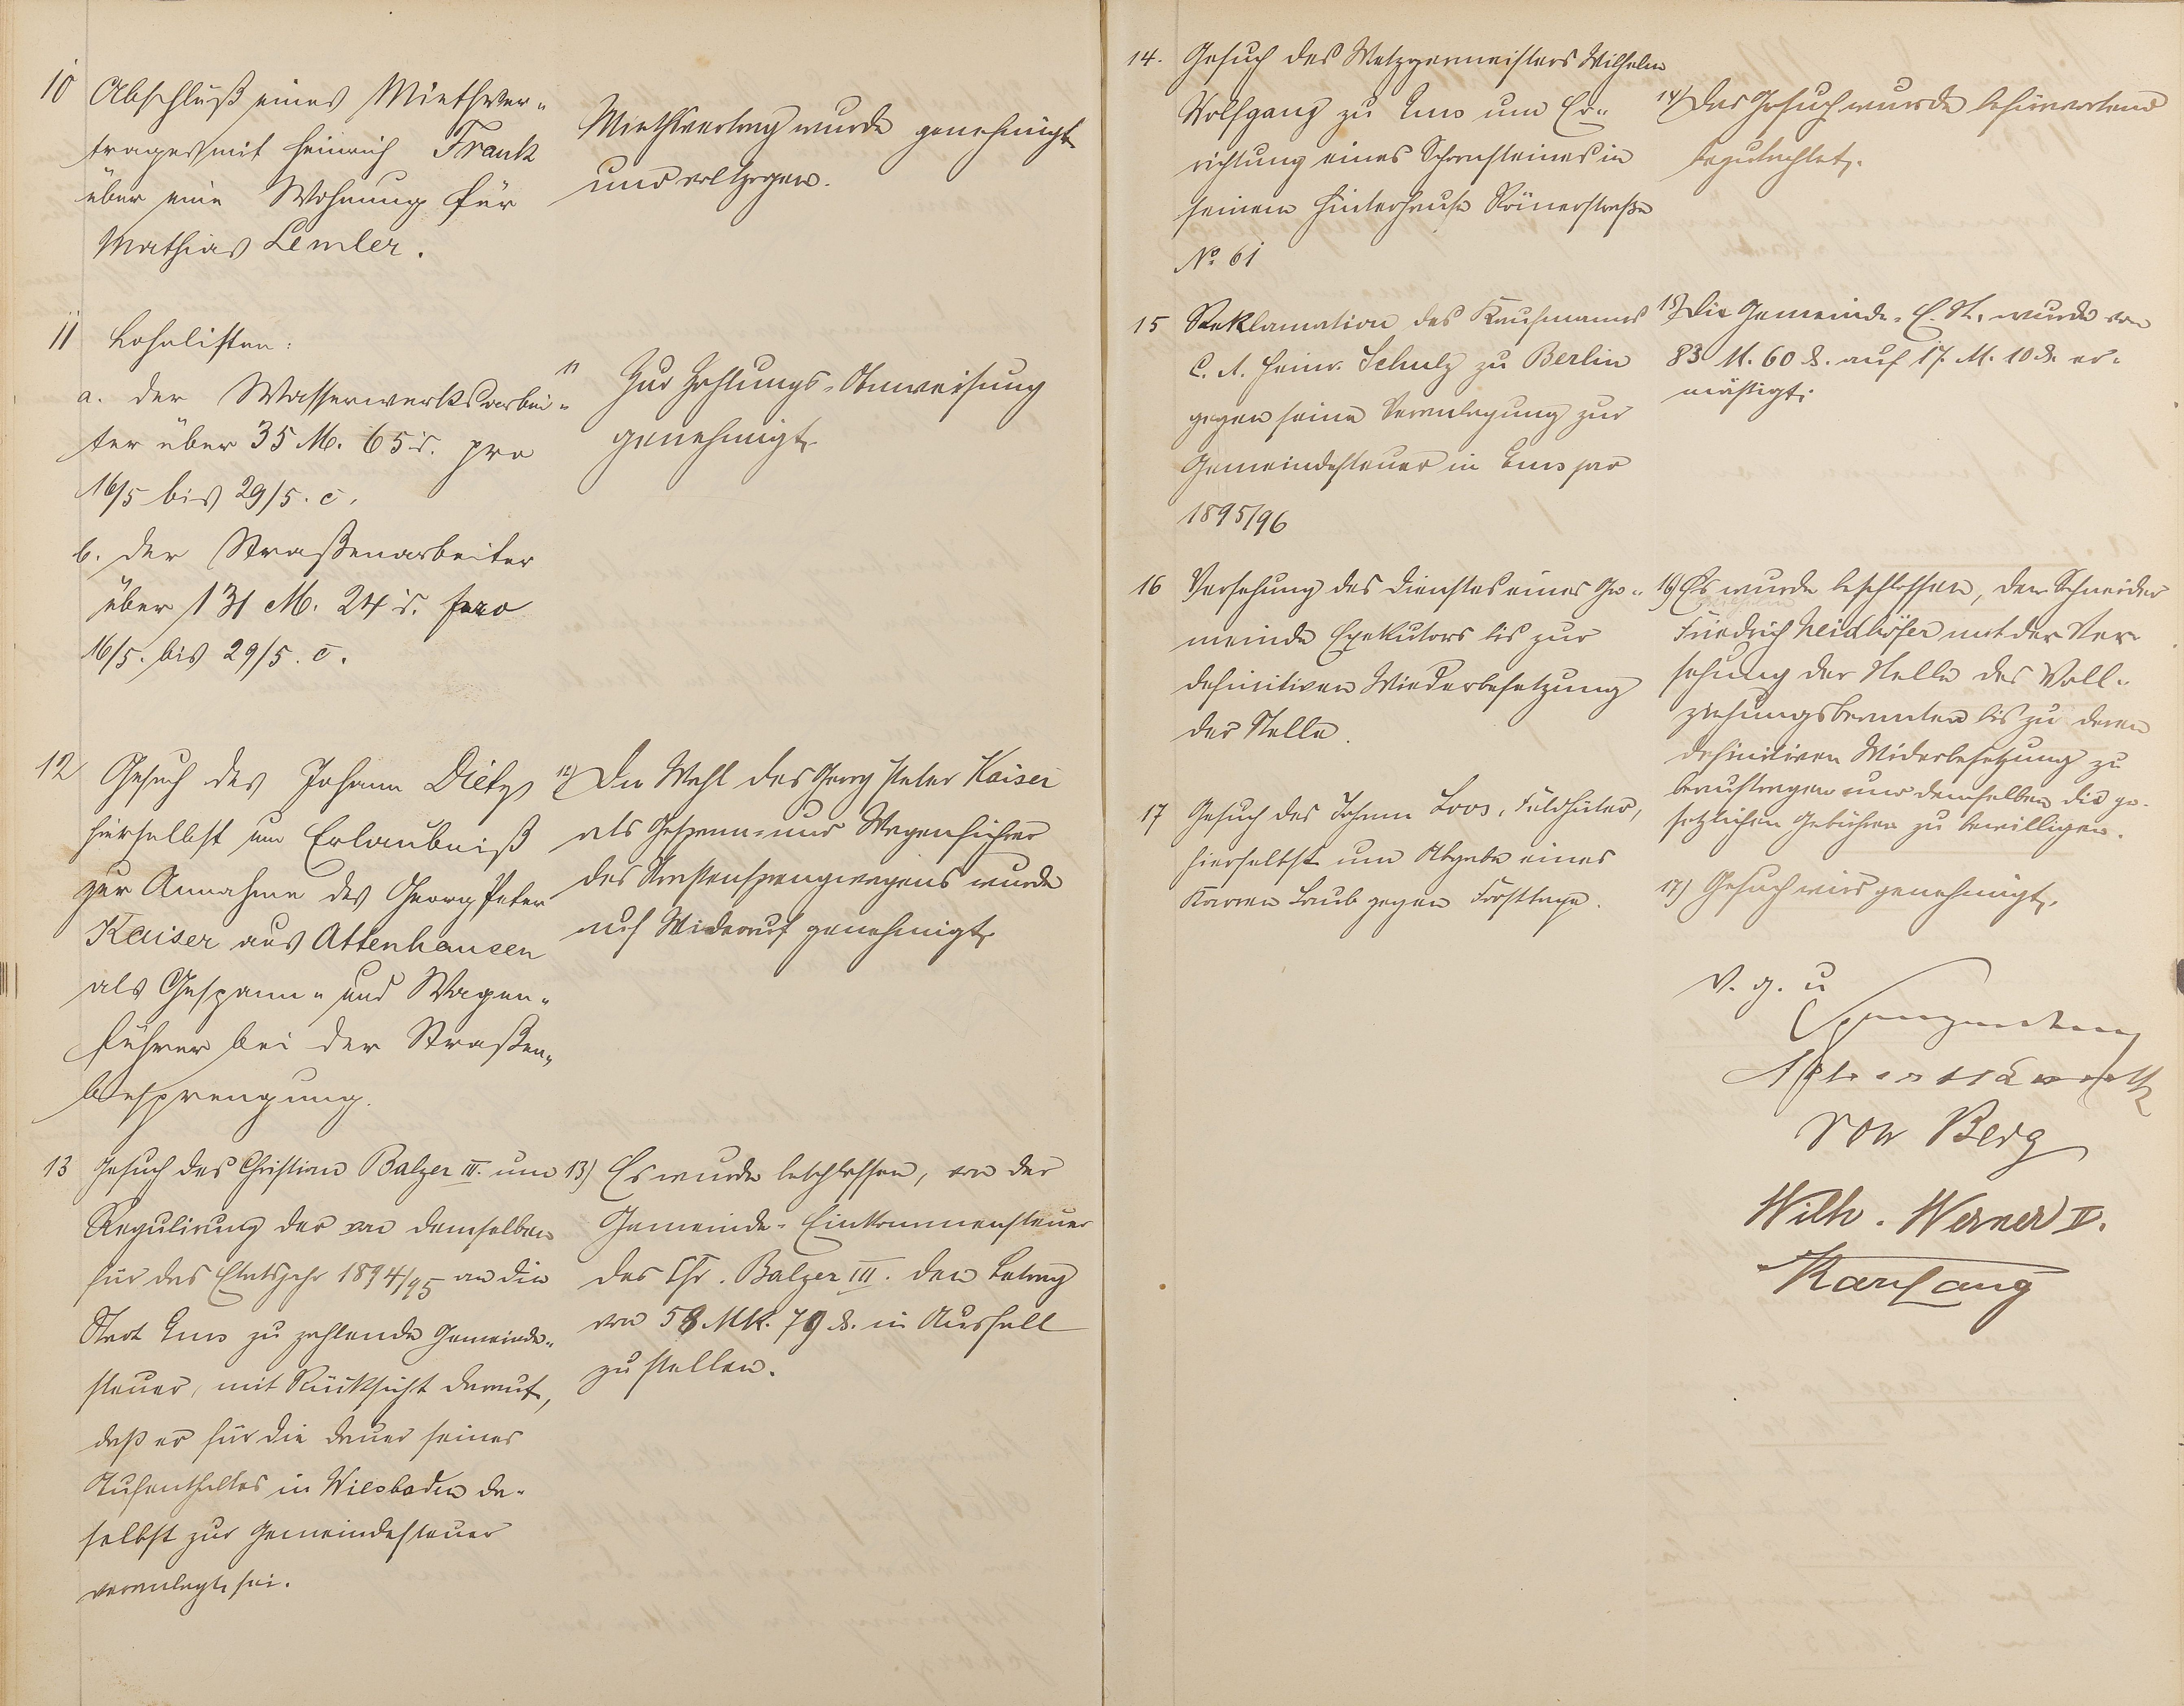 10 Abschluß eines Miethver-
trages mit Heinrich Frank
über eine Wohnung für
Mathias Lemler.
Miethvertrag wurde genehmigt
und vollzogen.
11 Lohnlisten:
a. der Wasserwerksarbei-
ter über 35 M. 65 ₰. pro
16/5 bis 29/5. c.
b. der Straßenarbeiter
über 131 M. 24 ₰. pro
16/5. bis 29/5. c.
11 Zur Zahlungs-Anweisung
genehmigt.
12 Gesuch des Johann Dietz
hierselbst um Erlaubniß
zur Annahme des Georg Peter
Kaiser aus Attenhausen
als Gespann- und Wagen-
führer bei der Straßen-
besprengung.
12) Die Wahl des Georg Peter Kaiser
als Gespann- und Wagenführer
des Straßensprengwagens wurde
auf Widerruf genehmigt.
13 Gesuch des Christian Balzer III. um
Regulirung der von demselben
für das Etatsjahr 1894/95 an die
Stadt Ems zu zahlende Gemeinde-
steuer, mit Rücksicht darauf,
daß er für die Dauer seines
Aufenthaltes in Wiesbaden da-
selbst zur Gemeindesteuer
veranlagt sei.
13) Es wurde beschlossen, von der
Gemeinde-Einkommensteuer
des Chr. Balzer III. den Betrag
von 58 Mk. 79 ₰. in Ausfall
zu stellen.
14. Gesuch des Metzgermeisters Wilhelm
Wolfgang zu Ems um Er-
richtung eines Schornsteines in
seinem Hinterhause Römerstraße
No. 61
14) Das Gesuch wurde befürwortend
begutachtet.
15 Reklamation des Kaufmanns
C. A. Heinr. Schulz zu Berlin
gegen seine Veranlagung zur
Gemeindesteuer in Ems pro
1895/96
15) Die Gemeinde-E. St. wurde von
83 M. 60 ₰. auf 17 M. 10 ₰. er-
mäßigt.
16 Versehung des Dienstes eines Ge-
meinde Exekutors bis zur
definitiven Wiederbesetzung
der Stelle.
16) Es wurde beschlossen, den Schneider
Friedrich Neidhöfer mit der Ver-
sehung der Stelle des Voll-
ziehungsbeamten bis zu deren
definitiven Widerbesetzung zu
beauftragen und demselben die ge-
setzlichen Gebühren zu bewilligen.
17 Gesuch des Johann Loos, Feldhüter,
hierselbst um Abgabe eines
Karren Laub gegen Forsttaxe.
17) Gesuch wird genehmigt.
v. g. u
von Berg
Wilh. Werner II.
Karl Lang